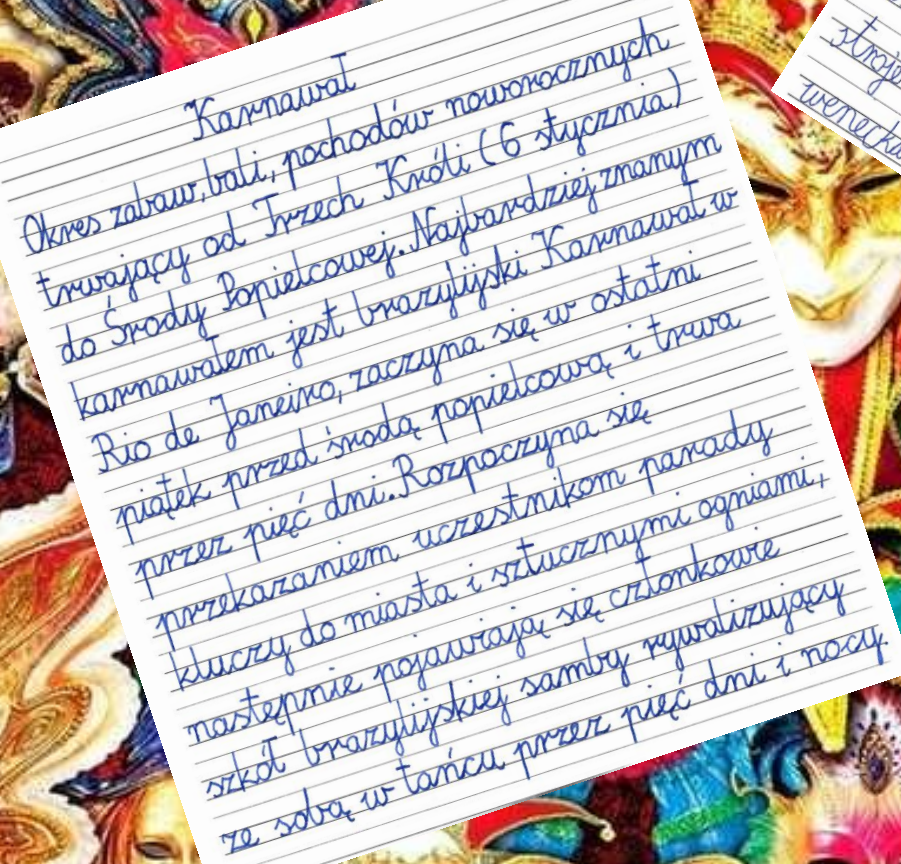 Karnawał
Okres zabaw, bali, pochodów noworocznych
trwający od Trzech Króli (6 stycznia)
do Środy Popielcowej. Najbardziej znanym
karnawałem jest brazylijski Karnawał w
Rio de Janeiro, zaczyna się w ostatni
piątek przed środą popielcową i trwa
przez pięć dni. Rozpoczyna się
przekazaniem uczestnikom parady
kluczy do miasta i sztucznymi ogniami,
następnie pojawiają się członkowie
szkół brazylijskiej samby rywalizujący
ze sobą w tańcu przez pięć dni i nocy.
stroje